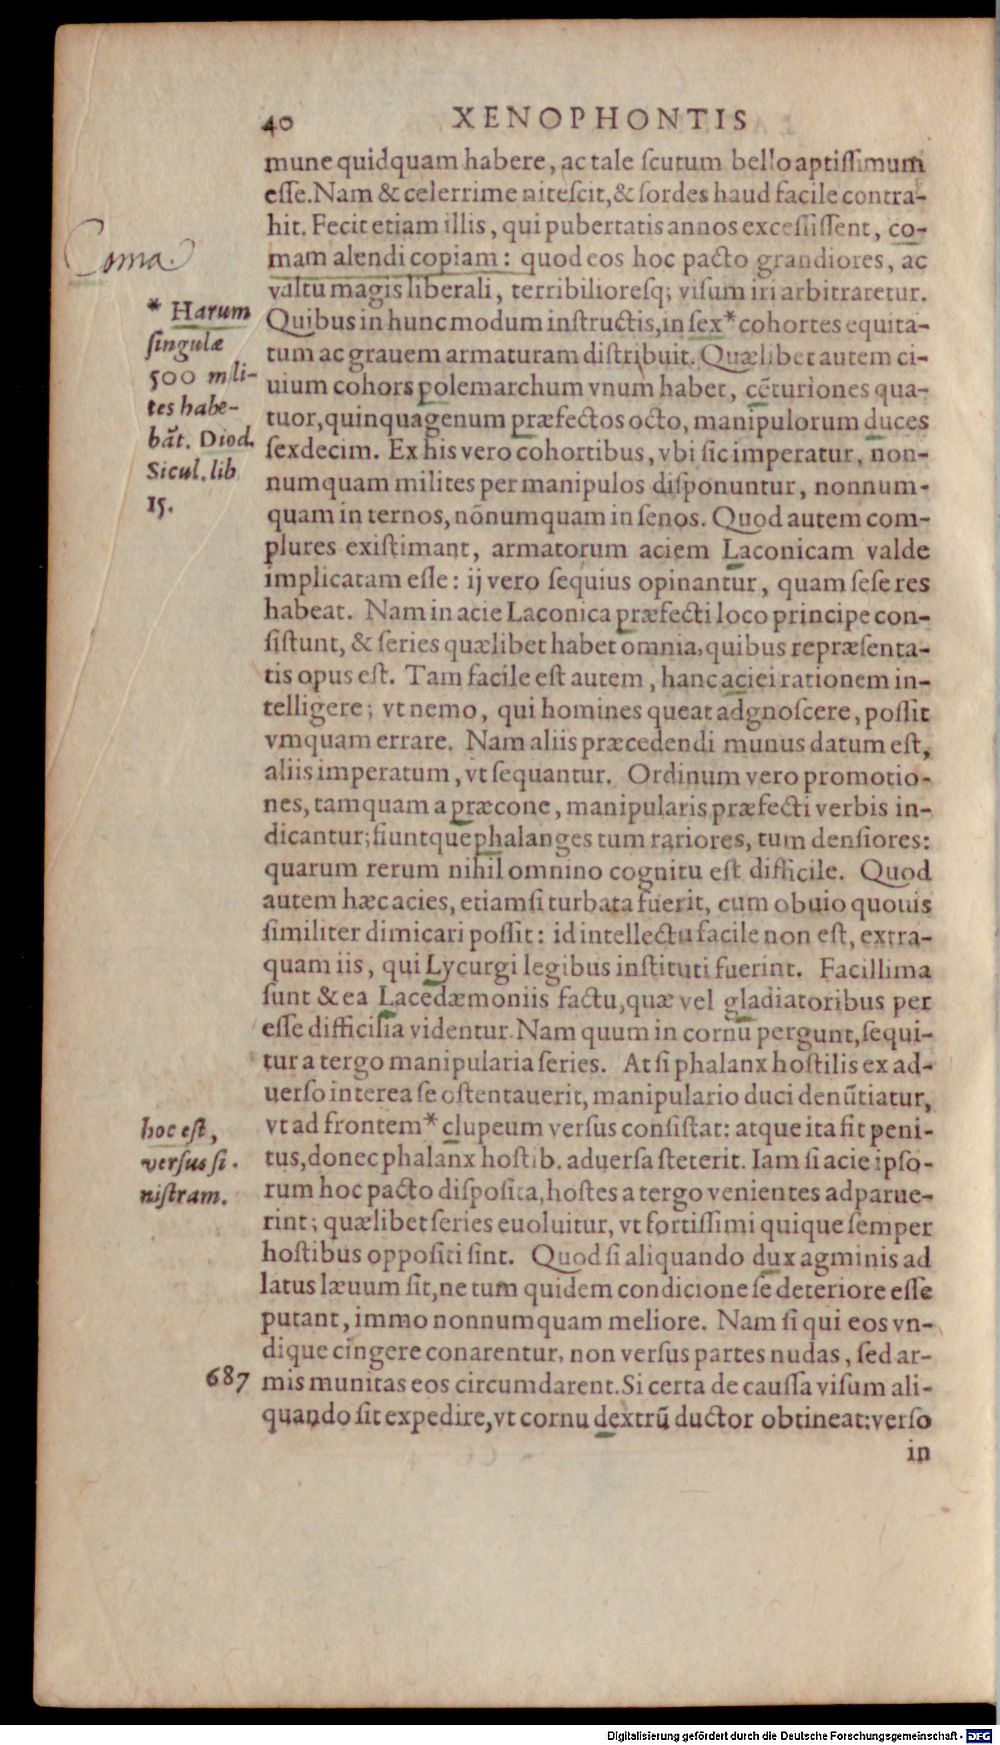 40 XENOPHONTIS
mune quidquam habere, ac tale ſcutum bello aptiſſimum
eſſe. Nam & celerrime niteſcit, & ſordes haud facile contra-
hit. Fecit etiam illis, qui pubertatis annos exceſſiſſent, co-
mam alendi copiam: quod eos hoc pacto grandiores, ac
vultu magis liberali, terribilioresq; viſum iri arbitraretur.
Quibus in hunc modum inſtructis, in ſex* cohortes equita-
tum ac grauem armaturam diſtribuit. Quælibet autem ci-
uium cohors polemarchum vnum habet, cēturiones qua-
tuor, quinquagenum præfectos octo, manipulorum duces
ſexdecim. Ex his vero cohortibus, vbi ſic imperatur, non-
numquam milites per manipulos diſponuntur, nonnum-
quam in ternos, nōnumquam in ſenos. Quod autem com-
plures exiſtimant, armatorum aciem Laconicam valde
implicatam eſſe: ij vero ſequius opinantur, quam ſeſe res
habeat. Nam in acie Laconica præfecti loco principe con-
ſiſtunt, & ſeries quælibet habet omnia, quibus repræſenta-
tis opus eſt. Tam facile eſt autem, hanc aciei rationem in-
telligere; vt nemo, qui homines queat adgnoſcere, poſſit
vmquam errare. Nam aliis præcedendi munus datum eſt,
aliis imperatum, vt ſequantur. Ordinum vero promotio-
nes, tamquam a præcone, manipularis præfecti verbis in-
dicantur; fiuntque phalanges tum rariores, tum denſiores:
quarum rerum nihil omnino cognitu eſt difficile. Quod
autem hæc acies, etiamſi turbata fuerit, cum obuio quouis
ſimiliter dimicari poſſit: id intellectu facile non eſt, extra-
quam iis, qui Lycurgi legibus inſtituti fuerint. Facillima
ſunt & ea Lacedæmoniis factu, quæ vel gladiatoribus per
eſſe difficilia videntur. Nam quum in cornu pergunt, ſequi-
tur a tergo manipularia ſeries. At ſi phalanx hoſtilis ex ad-
uerſo interea ſe oſtentauerit, manipulario duci denūtiatur,
vt ad frontem* clupeum verſus conſiſtat: atque ita fit peni-
tus, donec phalanx hoſtib. aduerſa ſteterit. Iam ſi acie ipſo-
rum hoc pacto diſpoſita, hoſtes a tergo venientes adparue-
rint; quælibet ſeries euoluitur, vt fortiſſimi quique ſemper
hoſtibus oppoſiti ſint. Quod ſi aliquando dux agminis ad
latus læuum ſit, ne tum quidem condicione ſe deteriore eſſe
putant, immo nonnumquam meliore. Nam ſi qui eos vn-
dique cingere conarentur, non verſus partes nudas, ſed ar-
mis munitas eos circumdarent. Si certa de cauſſa viſum ali-
quando ſit expedire, vt cornu dextrū ductor obtineat: verſo
in
Coma.
* Harum
ſingulæ
500 mili-
tes habe-
bāt. Diod.
Sicul. lib
15.
hoc eſt,
verſus ſi-
niſtram.
687
Digitalisierung gefördert durch die Deutsche Forschungsgemeinschaft - DFG